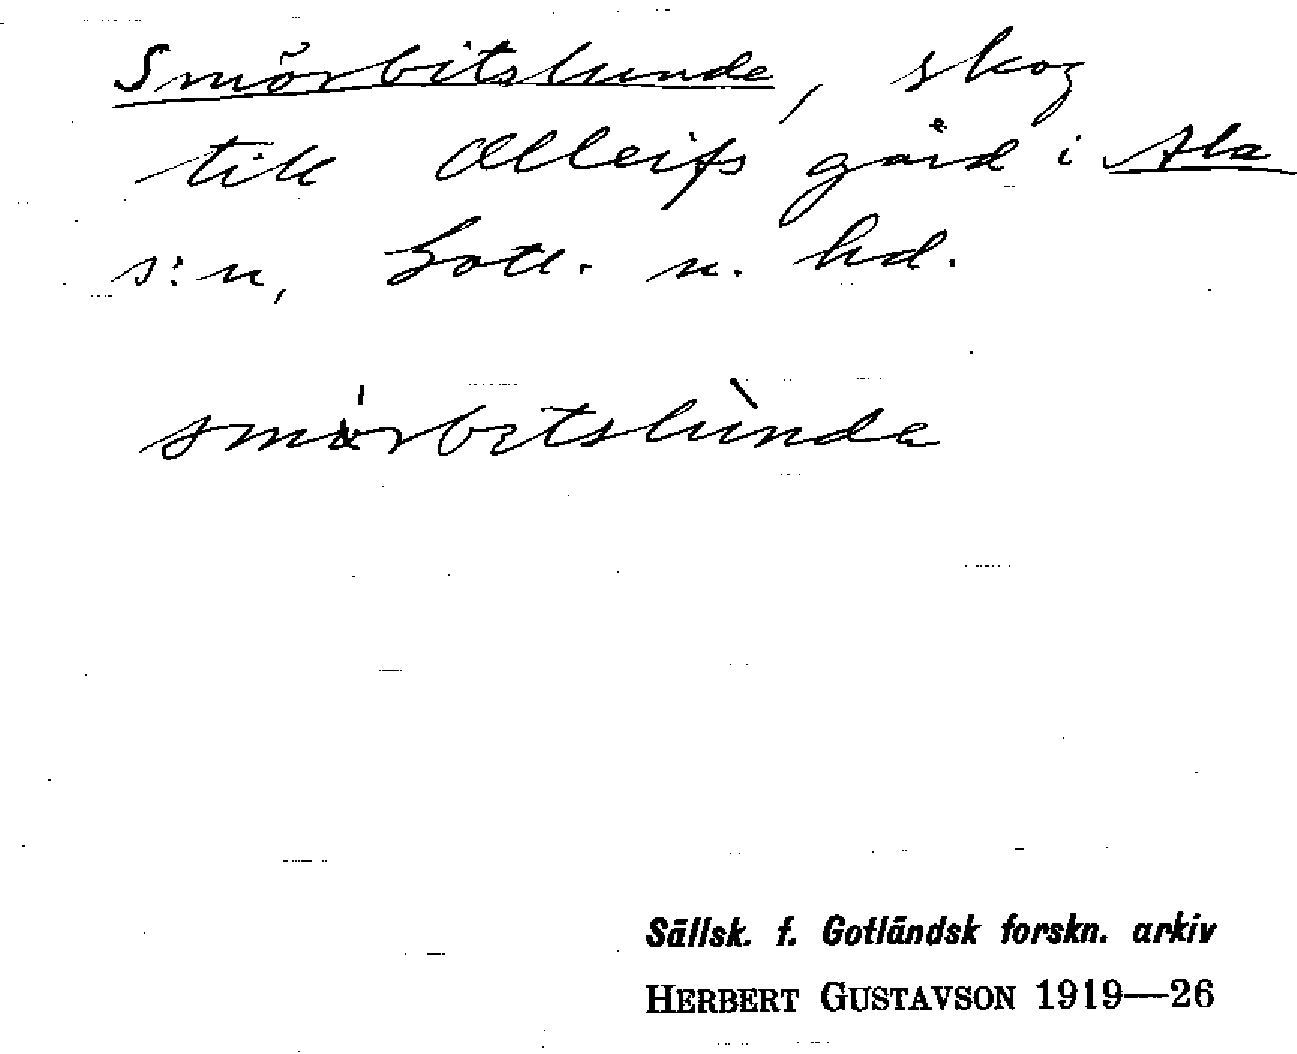 Smörbitslunde, skog
till Olleifs gård i Ala
s:n, Gotl. n. hd.
smörbitslùnda
Sällsk. f. Gotländsk forskn. arkiv
HERBERT GUSTAVSON 1919—26